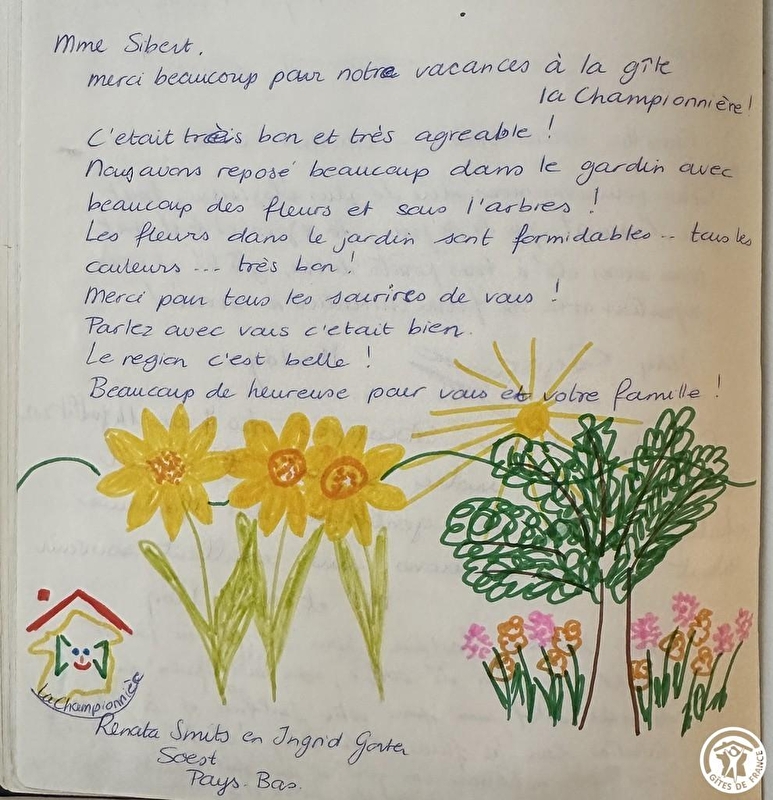 Mme Sibert,
merci beaucoup pour notre vacances à la gîte
la Championnière!
C'etait très bon et très agreable!
Nous avons reposé beaucoup dans le gardin avec
beaucoup des fleurs et sous l'arbres!
Les fleurs dans le jardin sont formidables... tous les
couleurs... très bon!
Merci pour tous les sourires de vous!
Parlez avec vous c'etait bien.
Le region c'est belle!
Beaucoup de heureuse pour vous et votre famille!
La Championnière
Renata Smits en Ingrid
Soest
Pays-Bas.
GÎTES DE FRANCE